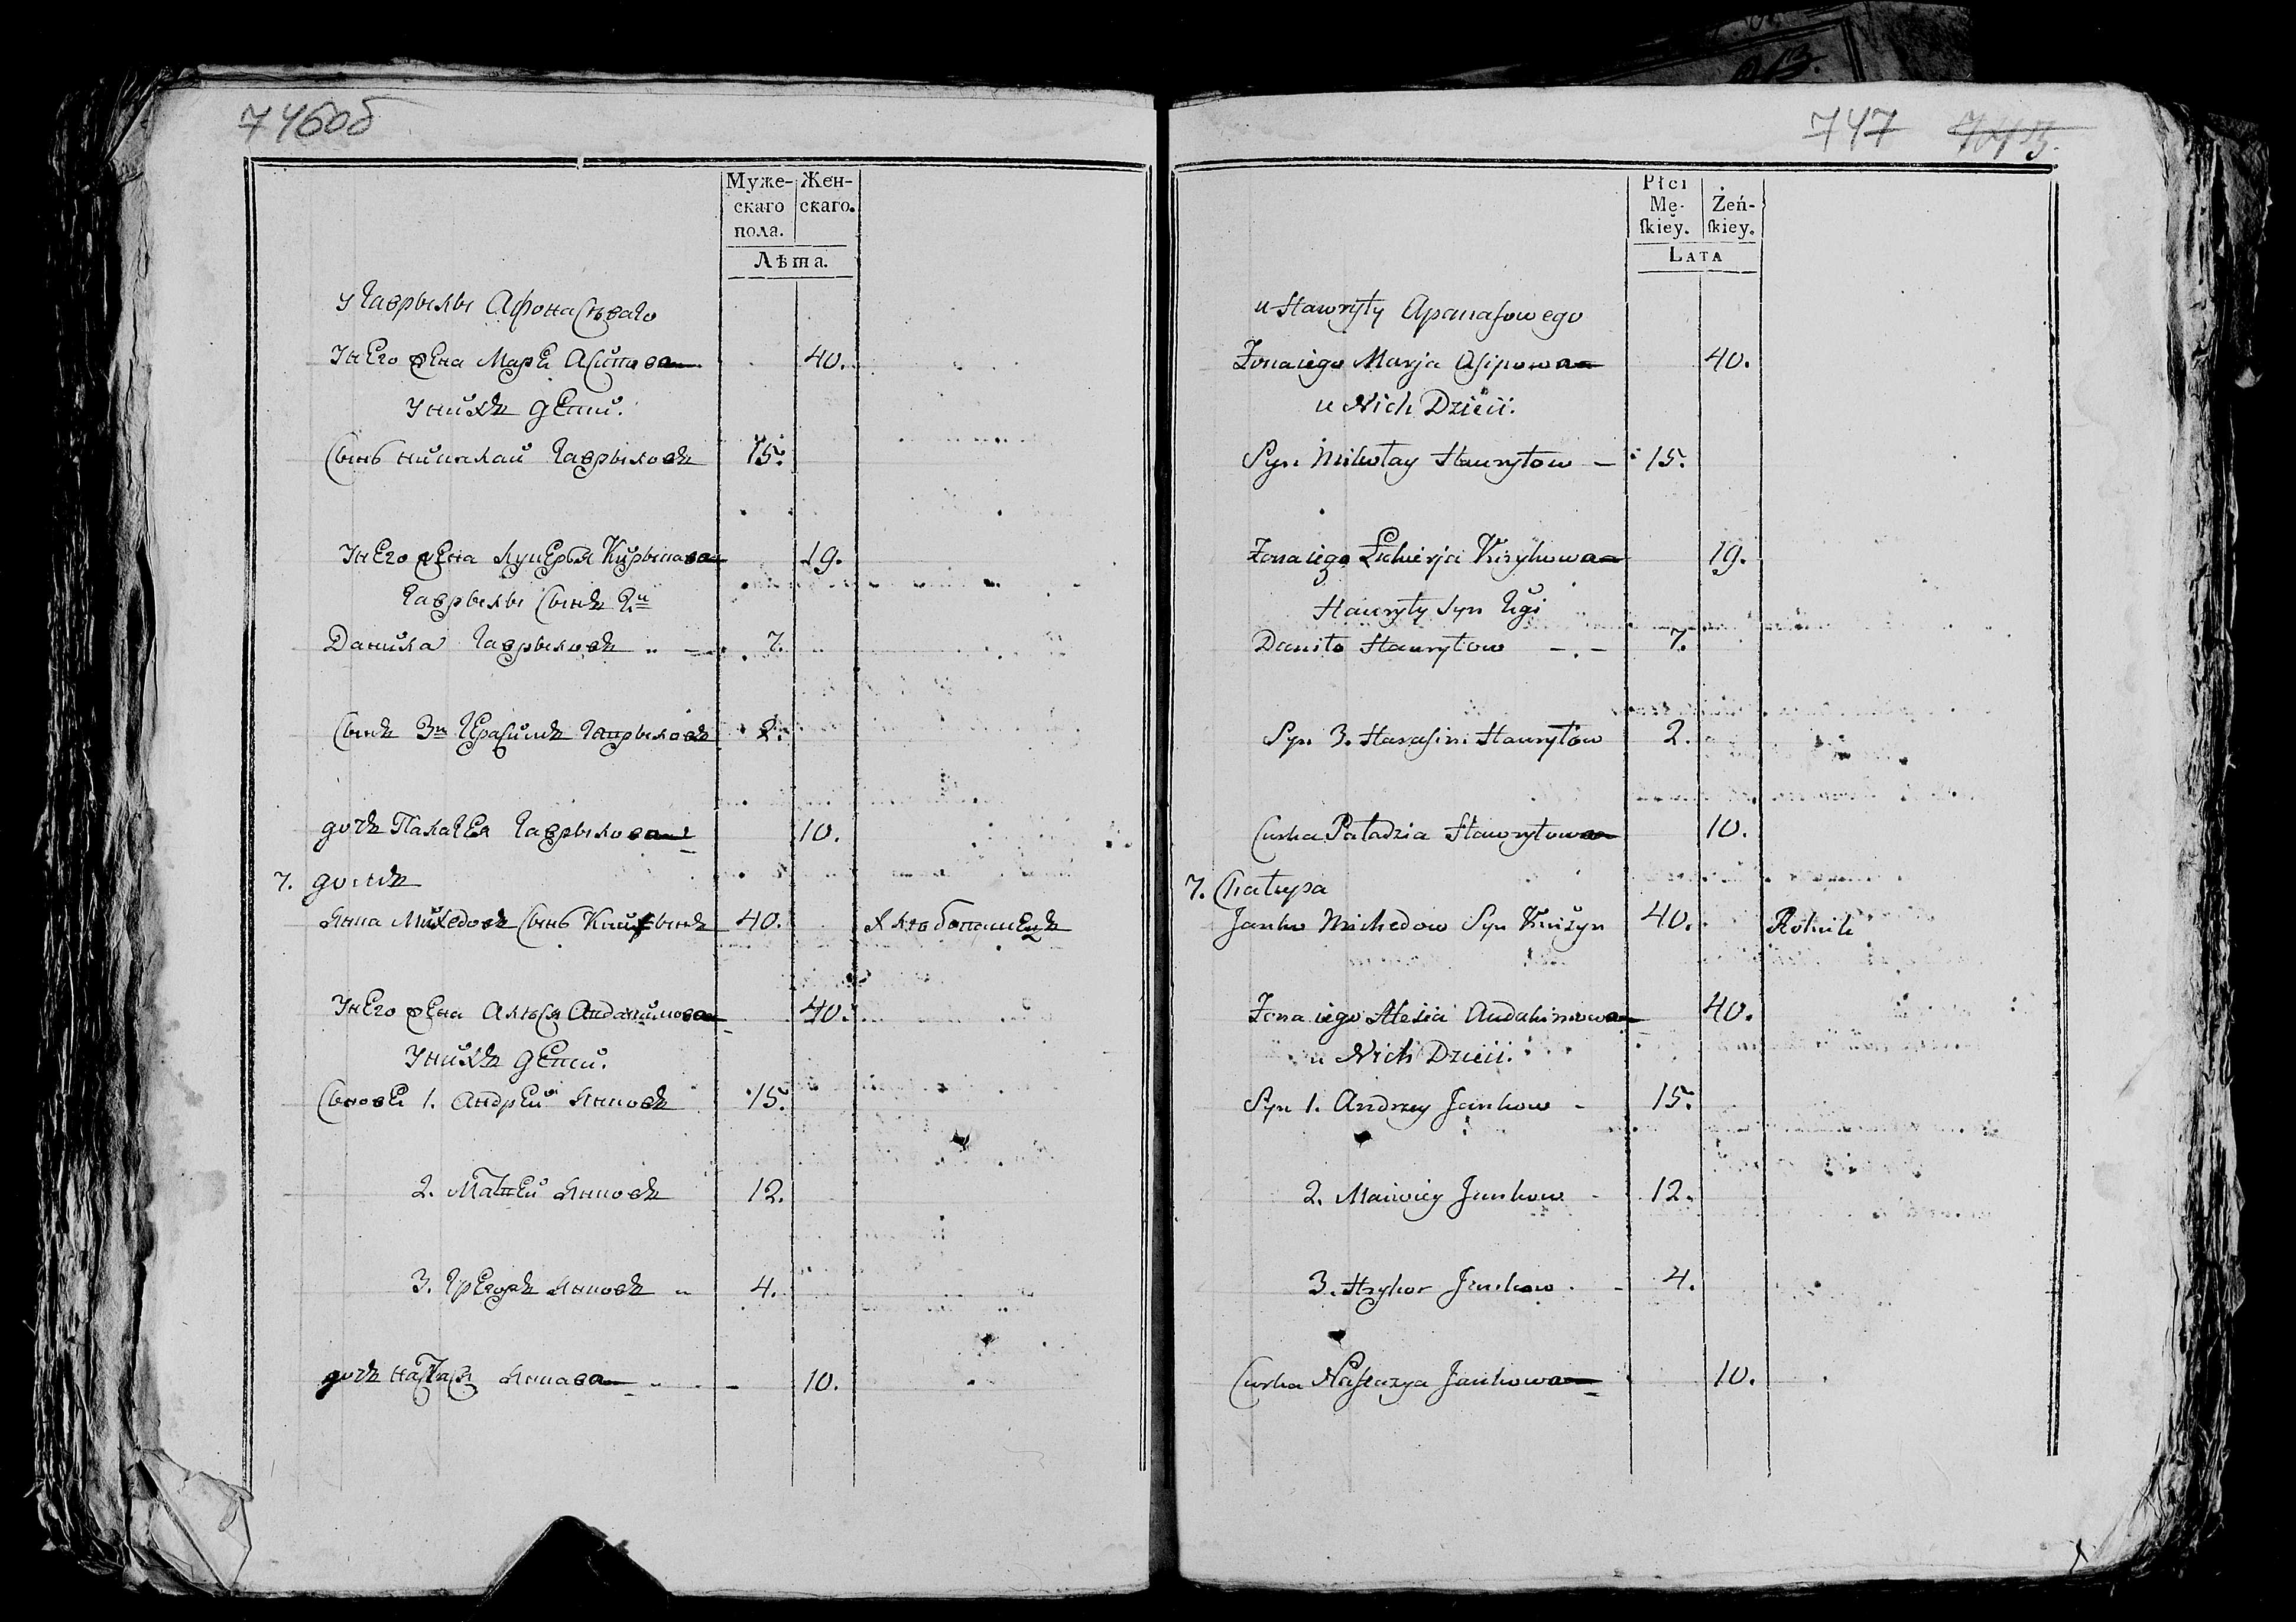 746об
Муже- Жен-
скаго скаго.
пола.
Лѣта.
у Гаврылы Афонасьваго
Унего жена Маря Асипова 40.
Унихъ дети.
Сынь николай Гаврыловъ 15.
Унего жена Лукеръя Кирыкова 19.
Гаврылы Сынъ 2и
Данила Гаврыловъ 7.
Сынъ 3и Герасимъ Гаврыловъ 2.
дочъ Палагея Гаврылова 10.
7. домъ
Янка Михедовъ Сынь 40. Хлѣбопашецъ
Унего жена Алѣся Андакимова 40.
Унихъ дети.
Сыновеи 1. Андреи Янковъ 15.
2. Матвеи Янковъ 12.
3. Грегоръ Янковъ 4.
дочъ настася Янкова 10.
747 745.
Płci
Mę- Żeń-
ſkiey. ſkiey.
Lata
u Hawryły Apanasowego
Zona iego Marja Asipowa 40.
u Nich Dzieci.
Syn Mikołay Hawryłow 15.
Zona iego Łukierja Kirykowa 19.
Hawryły Syn 2gi
Daniło Hawryłow 7.
Syn 3. Harasim Hawryłow 2.
Curka Paładzia Hawryłowa 10.
7. Chałupa
Janko Michedow Syn 40. Rolnik
Zona iego Alesia Audakimowa 40.
u Nich Dzieci.
Syn 1. Andrzey Jankow 15.
2. Maciwiey Jankow 12.
3. Hryhor Jankow 4.
Curka Nastazya Jankowa 10.